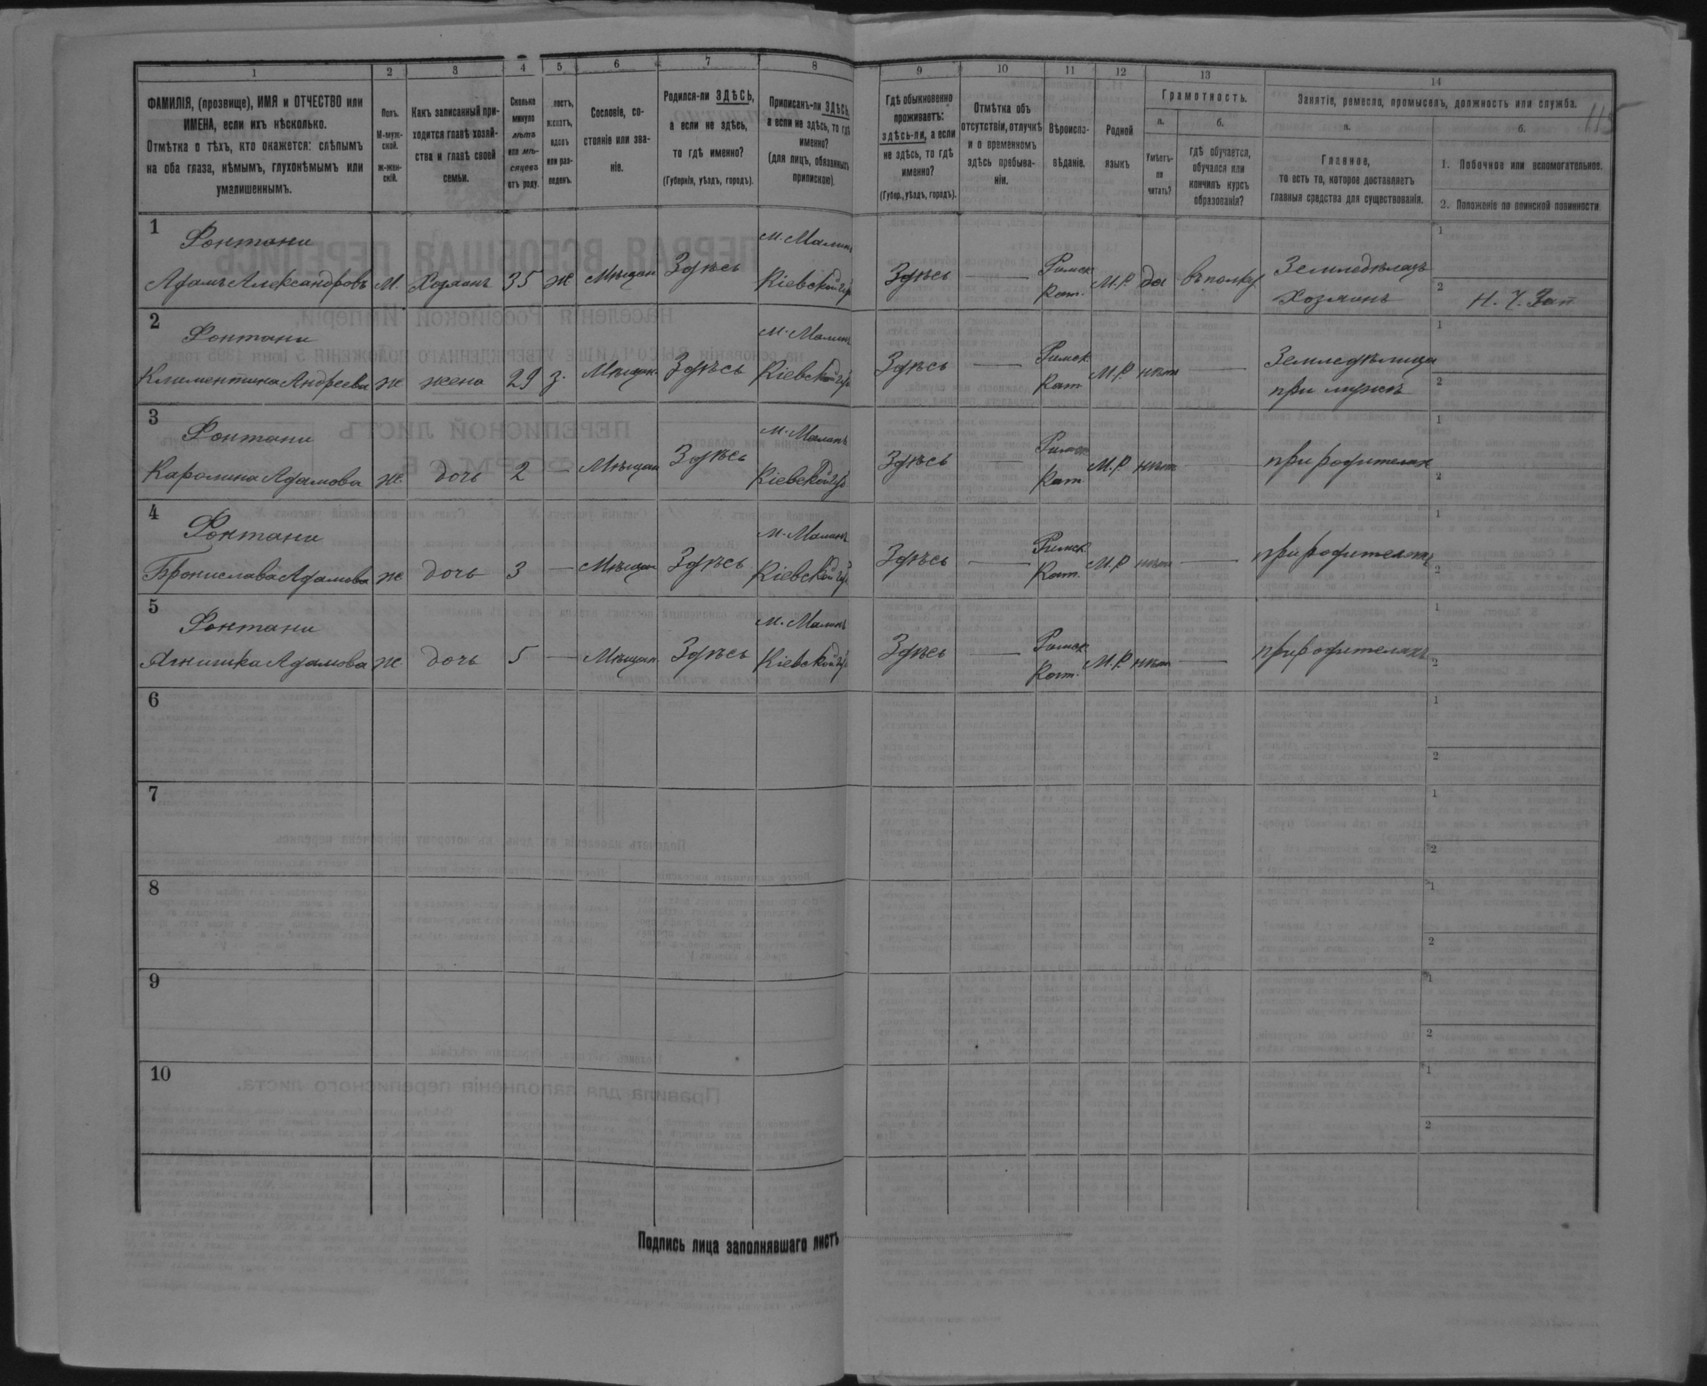 1 2 3 4 5 6 7 8 9 10 11 12 13 14
115
ФАМИЛІЯ, (прозвище), ИМЯ и ОТЧЕСТВО или
ИМЕНА, если ихъ нѣсколько.
Отмѣтка о тѣхъ, кто окажется: слѣпымъ
на оба глаза, нѣмымъ, глухонѣмымъ или
умалишеннымъ.
Полъ.
М-муж-
ской.
Ж-жен-
скій.
Какъ записанный при-
ходится главѣ хозяй-
ства и главѣ своей
семьи.
Сколько
минуло
лѣтъ
или мѣ-
сяцевъ
отъ роду.
Сословіе, со-
стояніе или зва-
ніе.
Родился-ли ЗДѢСЬ,
а если не здѣсь,
то гдѣ именно?
(Губернія, уѣздъ, городъ).
Приписанъ-ли ЗДѢСЬ,
а если не здѣсь, то гдѣ
именно?
(для лицъ, обязанныхъ
припискою).
Гдѣ обыкновенно
проживаетъ:
здѣсь-ли, а если
не здѣсь, то гдѣ
именно?
(Губер., уѣздъ, городъ).
Отмѣтка объ
отсутствіи, отлучкѣ
и о временномъ
здѣсь пребыва-
ніи.
Вѣроиспо-
вѣданіе.
Родной
языкъ
Грамотность.
а.
Умѣетъ-
ли
читать?
б.
гдѣ обучается,
обучался или
кончилъ курсъ
образованія?
Занятіе, ремесло, промыселъ, должность или служба.
а.
Главное,
то есть то, которое доставляетъ
главныя средства для существованія.
б.
1. Побочное или вспомогательное.
2. Положеніе по воинской повинности
1
Фонтани м. Малинъ
Адамъ Александровъ М. Хозяинъ 35 ж Мѣщан Здѣсь Кіевской губ Здѣсь — Римск Кат. М.Р да въ полку Земледѣлецъ Хозяинъ
1
2 Н. Ч. Зап
2
Фонтани м. Малинъ
Климентина Андреева ж жена 29 з. Мѣщан Здѣсь Кіевской губ Здѣсь — Римск Кат М.Р нѣтъ — Земледѣлица при мужѣ
1
2
3
Фонтани м. Малинъ
Каролина Адамова ж. дочь 2 — Мѣщан Здѣсь Кіевской губ Здѣсь — Римск Кат М.Р нѣтъ — при родителяхъ
1
2
4
Фонтани м. Малинъ
Брониславa Адамова ж дочь 3 — Мѣщан Здѣсь Кіевской губ Здѣсь — Римск Кат. М.Р нѣтъ — при родителяхъ
1
2
5
Фонтани м. Малинъ
Агнишка Адамова ж дочь 5 — Мѣщан Здѣсь Кіевской губ Здѣсь — Римск Кат. М.Р нѣтъ — при родителяхъ
1
2
6
1
2
7
1
2
8
1
2
9
1
2
10
1
2
Подпись лица заполнявшаго листъ